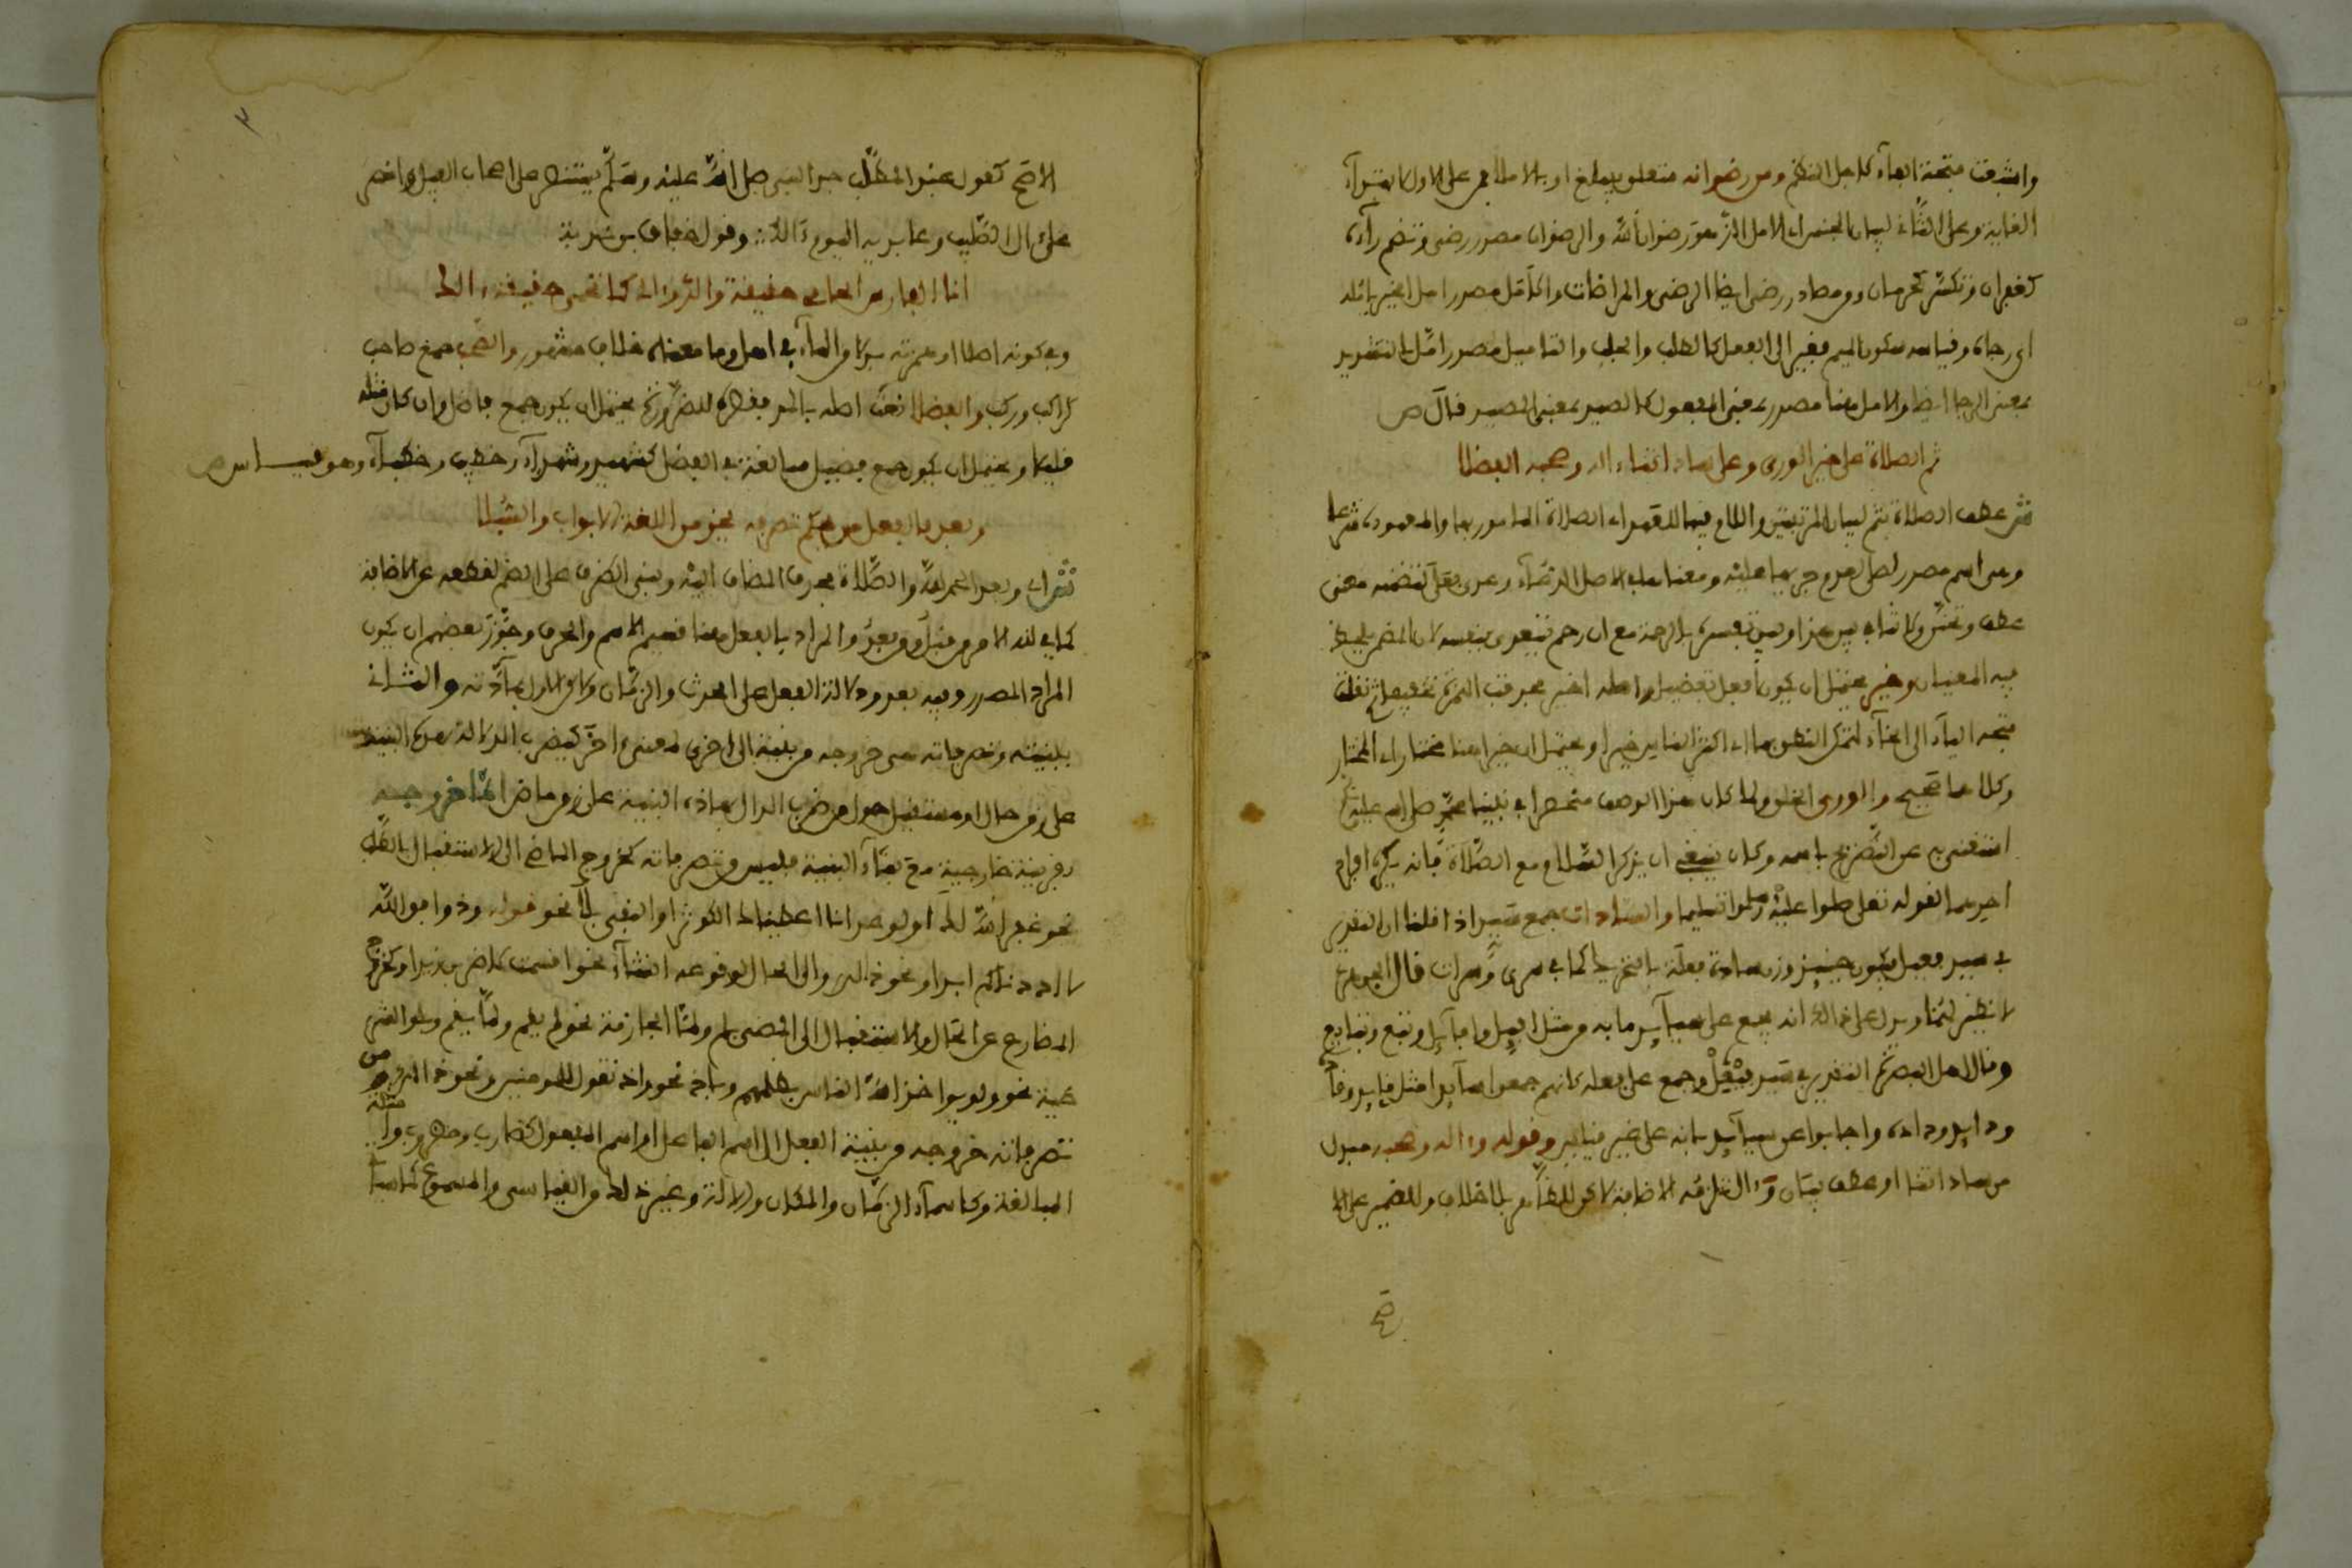 واشبعت فتحة الهاء لاجل النظم ومن رضوانه متعلق بيبلغ او بالامل بمن على الاول لابتداء
الغاية وعلى الثاني لبيان الجنس اي الامل الذي هو رضوان الله والرضوان مصدر رضي وتضم راءه
كغفران وتكسر كحرمان ومن مصادر رضي ايضا الرضى والمرضات والامل مصدر امل الخير يامله
اي رجاه وقياسه سكون الميم فغير الى الفعل كالطلب والجلب والتاميل مصدر امّل بالتشديد
بمعنى الرجا ايضا والامل هنا مصدر بمعنى المفعول كالصيد بمعنى المصيد قال ص
ثم الصلاة على خير الورى وعلى سادتنا ءاله وصحبه الفضلا
ش عطف الصلاة بثم لبيان المرتبتين واللام فيها للعهد اي الصلاة المامور بها والمعهودة شرعا
وهي اسم مصدر لصلى لعدم جريها عليه ومعناها في الاصل الدعاء وعدى بعلى لتضمنه معنى
عطف وتحنن ولا تنافي بين هذا وبين تفسيره بالرحمة مع ان رحم يتعدى بنفسه لان المضمر يلحظ
فيه المعنيان وخير يحتمل ان يكون افعل تفضيل واصله اخير بحذف الهمزة تخفيفا ثم نقلت
فتحة الياء الى الخاء لتمكن النطق بها اي اكثر الناس خيرا ويحتمل ان خيرا هنا مختار اي المختار
وكلاهما صحيح والورى الخلق ولما كان هذا الوصف منحصرا في نبينا محمد صلى الله عليه
استغنى به عن التصريح باسمه وكان ينبغي ان يذكر السلام مع الصلاة فانه يكره افراد
احدهما لقوله تعلى صلوا عليه وسلموا تسليما والسادات جمع سيد اذا قلنا ان التقدير
في سيد فعيل فيكون حينئذ وزن سادة فعلة بالتحريك كما في سري وسراة قال الجوهري
لا نظير لهما ويدل على ذالك انه يجمع على سيائد بالهمز مثل افيل وافائل وتبيع وتبائع
وقال اهل البصرة التقدير في سيد فيعل وجمع على فعلة كانهم جمعوا سائدا مثل قايد وقادة
وذايد وذادة واجابوا عن سيائد بانه على غير قياس وقوله وءاله وصحبه مبدل
من سادتنا او عطف بيان وءال تلزمه الاضافة لاكن للظاهر بلا خلاف وللضمير على الا
صح
٣
الاصح كقول عبد المطلب جد النبي صلى الله عليه وسلم يستنصر على اصحاب الفيل وانصر
على ءال الصليب وعابديه اليوم ءالك :: وقول خفاف بن ندبة
انا الفارس الحامي حقيقة والدي ءالي كما تحمي حقيقة ءالكا
وفي كونه اصلا او همزته بدلا من الهاء في اهل وما معناه خلاف مشهور والصحب جمع صاحب
كراكب وركب والفضلا نعت اصله بالمد فقصره للضرورة يحتمل ان يكون جمع فاضل وان كان مثله
قليلا ويحتمل ان يكون جمع فضيل مبالغة في الفضل كشهيد وشهداء وخطيب وخطباء وهو قياس ص
وبعد فالفعل من يحكم تصرفه يحز من اللغة الابواب والسبلا
ش اي وبعد الحمد لله والصلاة بحذف المضاف اليه وبني الظرف على الضم لقطعه عن الاضافة
كما في لله الامر من قبل ومن بعد والمراد بالفعل هنا قسيم الاسم والحرف وجوز بعضهم ان يكون
المراد المصدر وفيه بعد ودلالة الفعل على الحدث والزمان ولاكن الاول بمادته والثاني
ببنيته وتصرفاته هي خروجه من بنية الى اخرى لمعنى ءاخر كيضرب الدال بهذه البنية
على زمن حال او مستقبل حول من ضرب الدال بهاذه البنية على زمن ماض اما خروجه
بقرينة خارجية مع بقاء البنية فليس من تصرفاته كخروج الماضي الى الاستقبال بالطلب
نحو غفر الله لك او الوعد انا اعطيناك الكوثر او النفي بلا نحو قوله وذوا موالله
لا اذنناكم ابدا ونحو ذالك والى الحال لوقوعه انشاء نحو اقسمت لاضربن زيدا وكخروج
المضارع عن الحال والاستقبال الى المضي بلم ولما الجازمة نحو لم يقم ولما يقم وبلو الشر
طية نحو ولو يواخذ الله الناس بظلمهم وباذ نحو واذ تقول للمومنين ونحو ذالك ومن
تصرفاته خروجه من بنية الفعل الى اسم الفاعل او اسم المفعول كضارب ومضروب وامثلة
المبالغة وكاسماء الزمان والمكان والالة وغير ذلك من القياسي والمسموع كما سيا